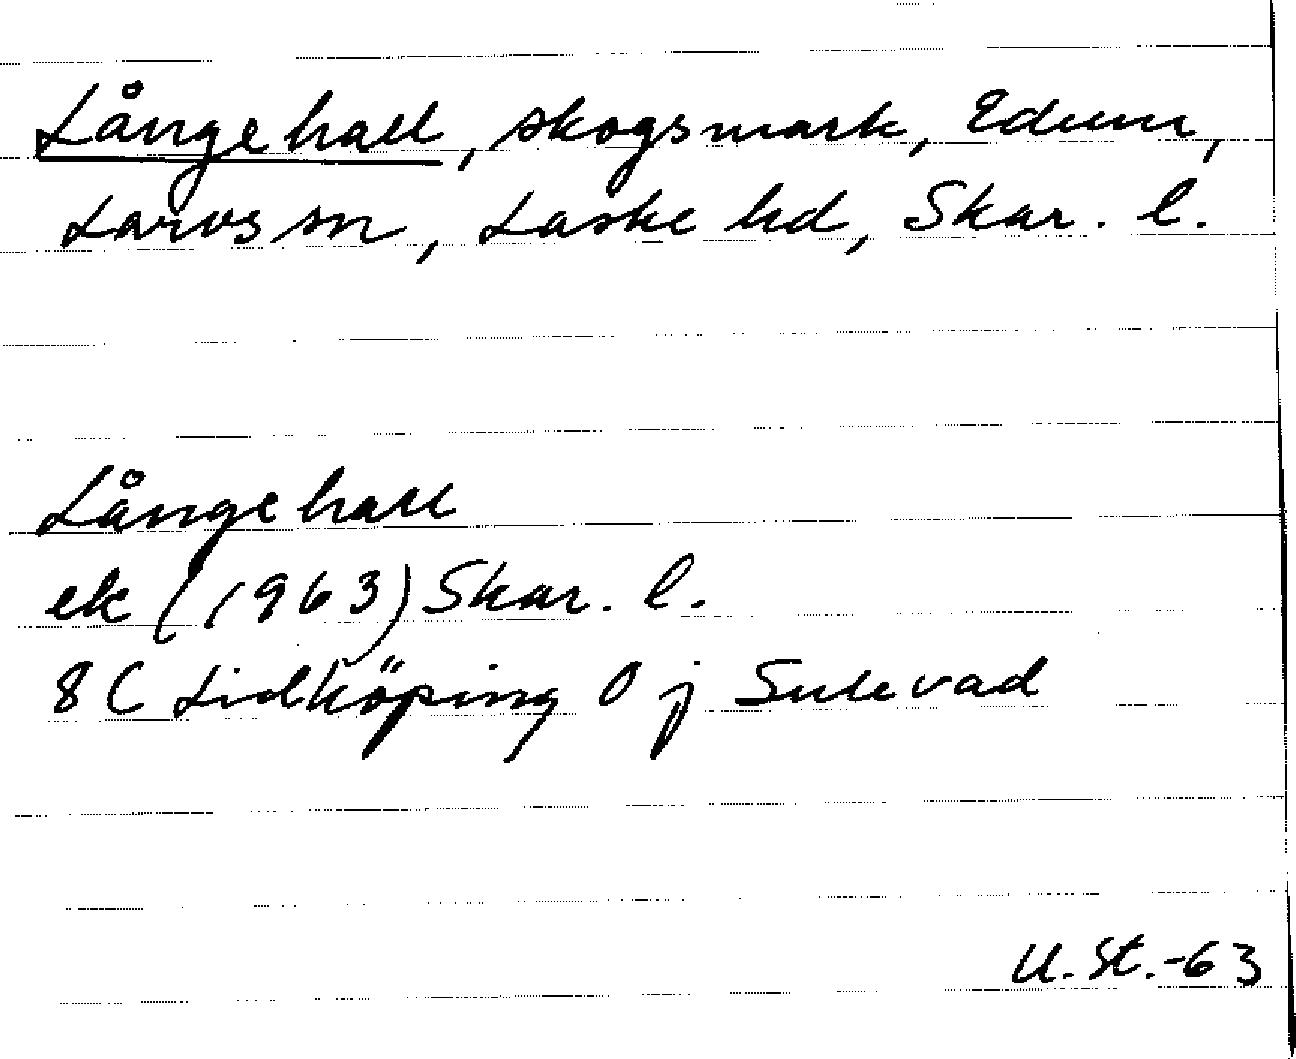 Långehall, skogsmark, Edum,
Larvs sn, Laske hd, Skar. l.
Långehall
ek (1963) Skar. l.
8C Lidköping 0 j Sulevad
U. St. -63